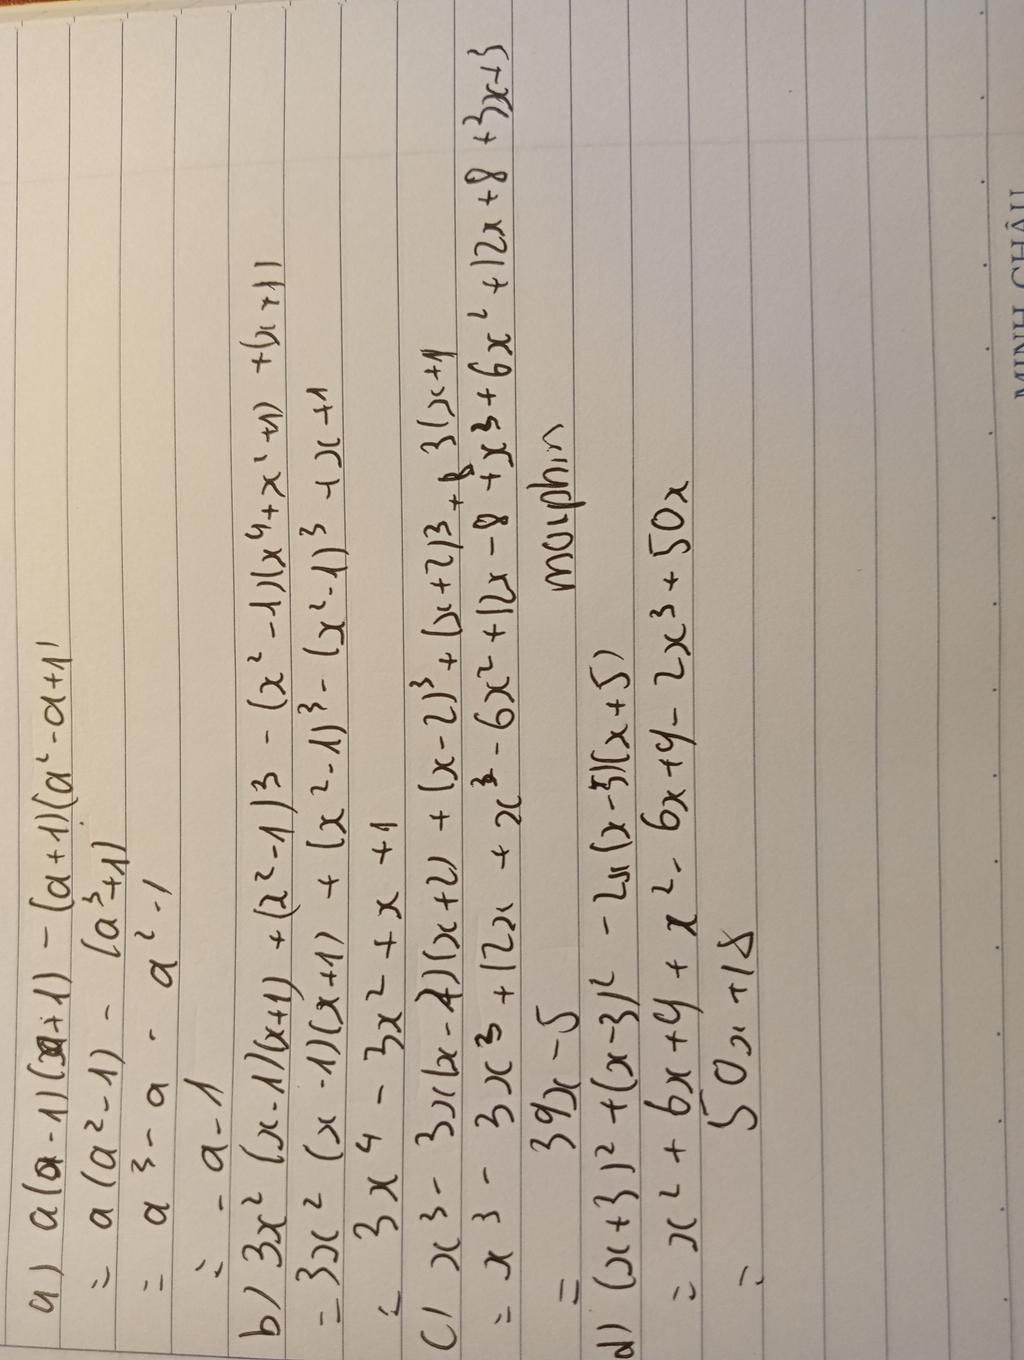 a) a(a-1)(a+1) - (a+1)(a²-a+1)
= a(a²-1) - (a³+1)
= a³ - a - a² - 1
= - a - 1
b) 3x² (x-1)(x+1) + (x²-1)³ - (x²-1)(x⁴+x²+1) + (x+1)
= 3x² (x-1)(x+1) + (x²-1)³ - (x²-1)³ + x+1
= 3x⁴ - 3x² + x + 1
c) x³ - 3x(x-2)(x+2) + (x-2)³ + (x+2)³ + 3(x+1
= x³ - 3x³ + 12x + x³ - 6x² + 12x - 8 + x³ + 6x² + 12x + 8 + 3x+3
= 39x - 5 morphin
d) (x+3)² + (x-3)² - 2x(x-5)(x+5)
= x² + 6x + 9 + x² - 6x + 9 - 2x³ + 50x
= 50x + 18
MINH CHÂU